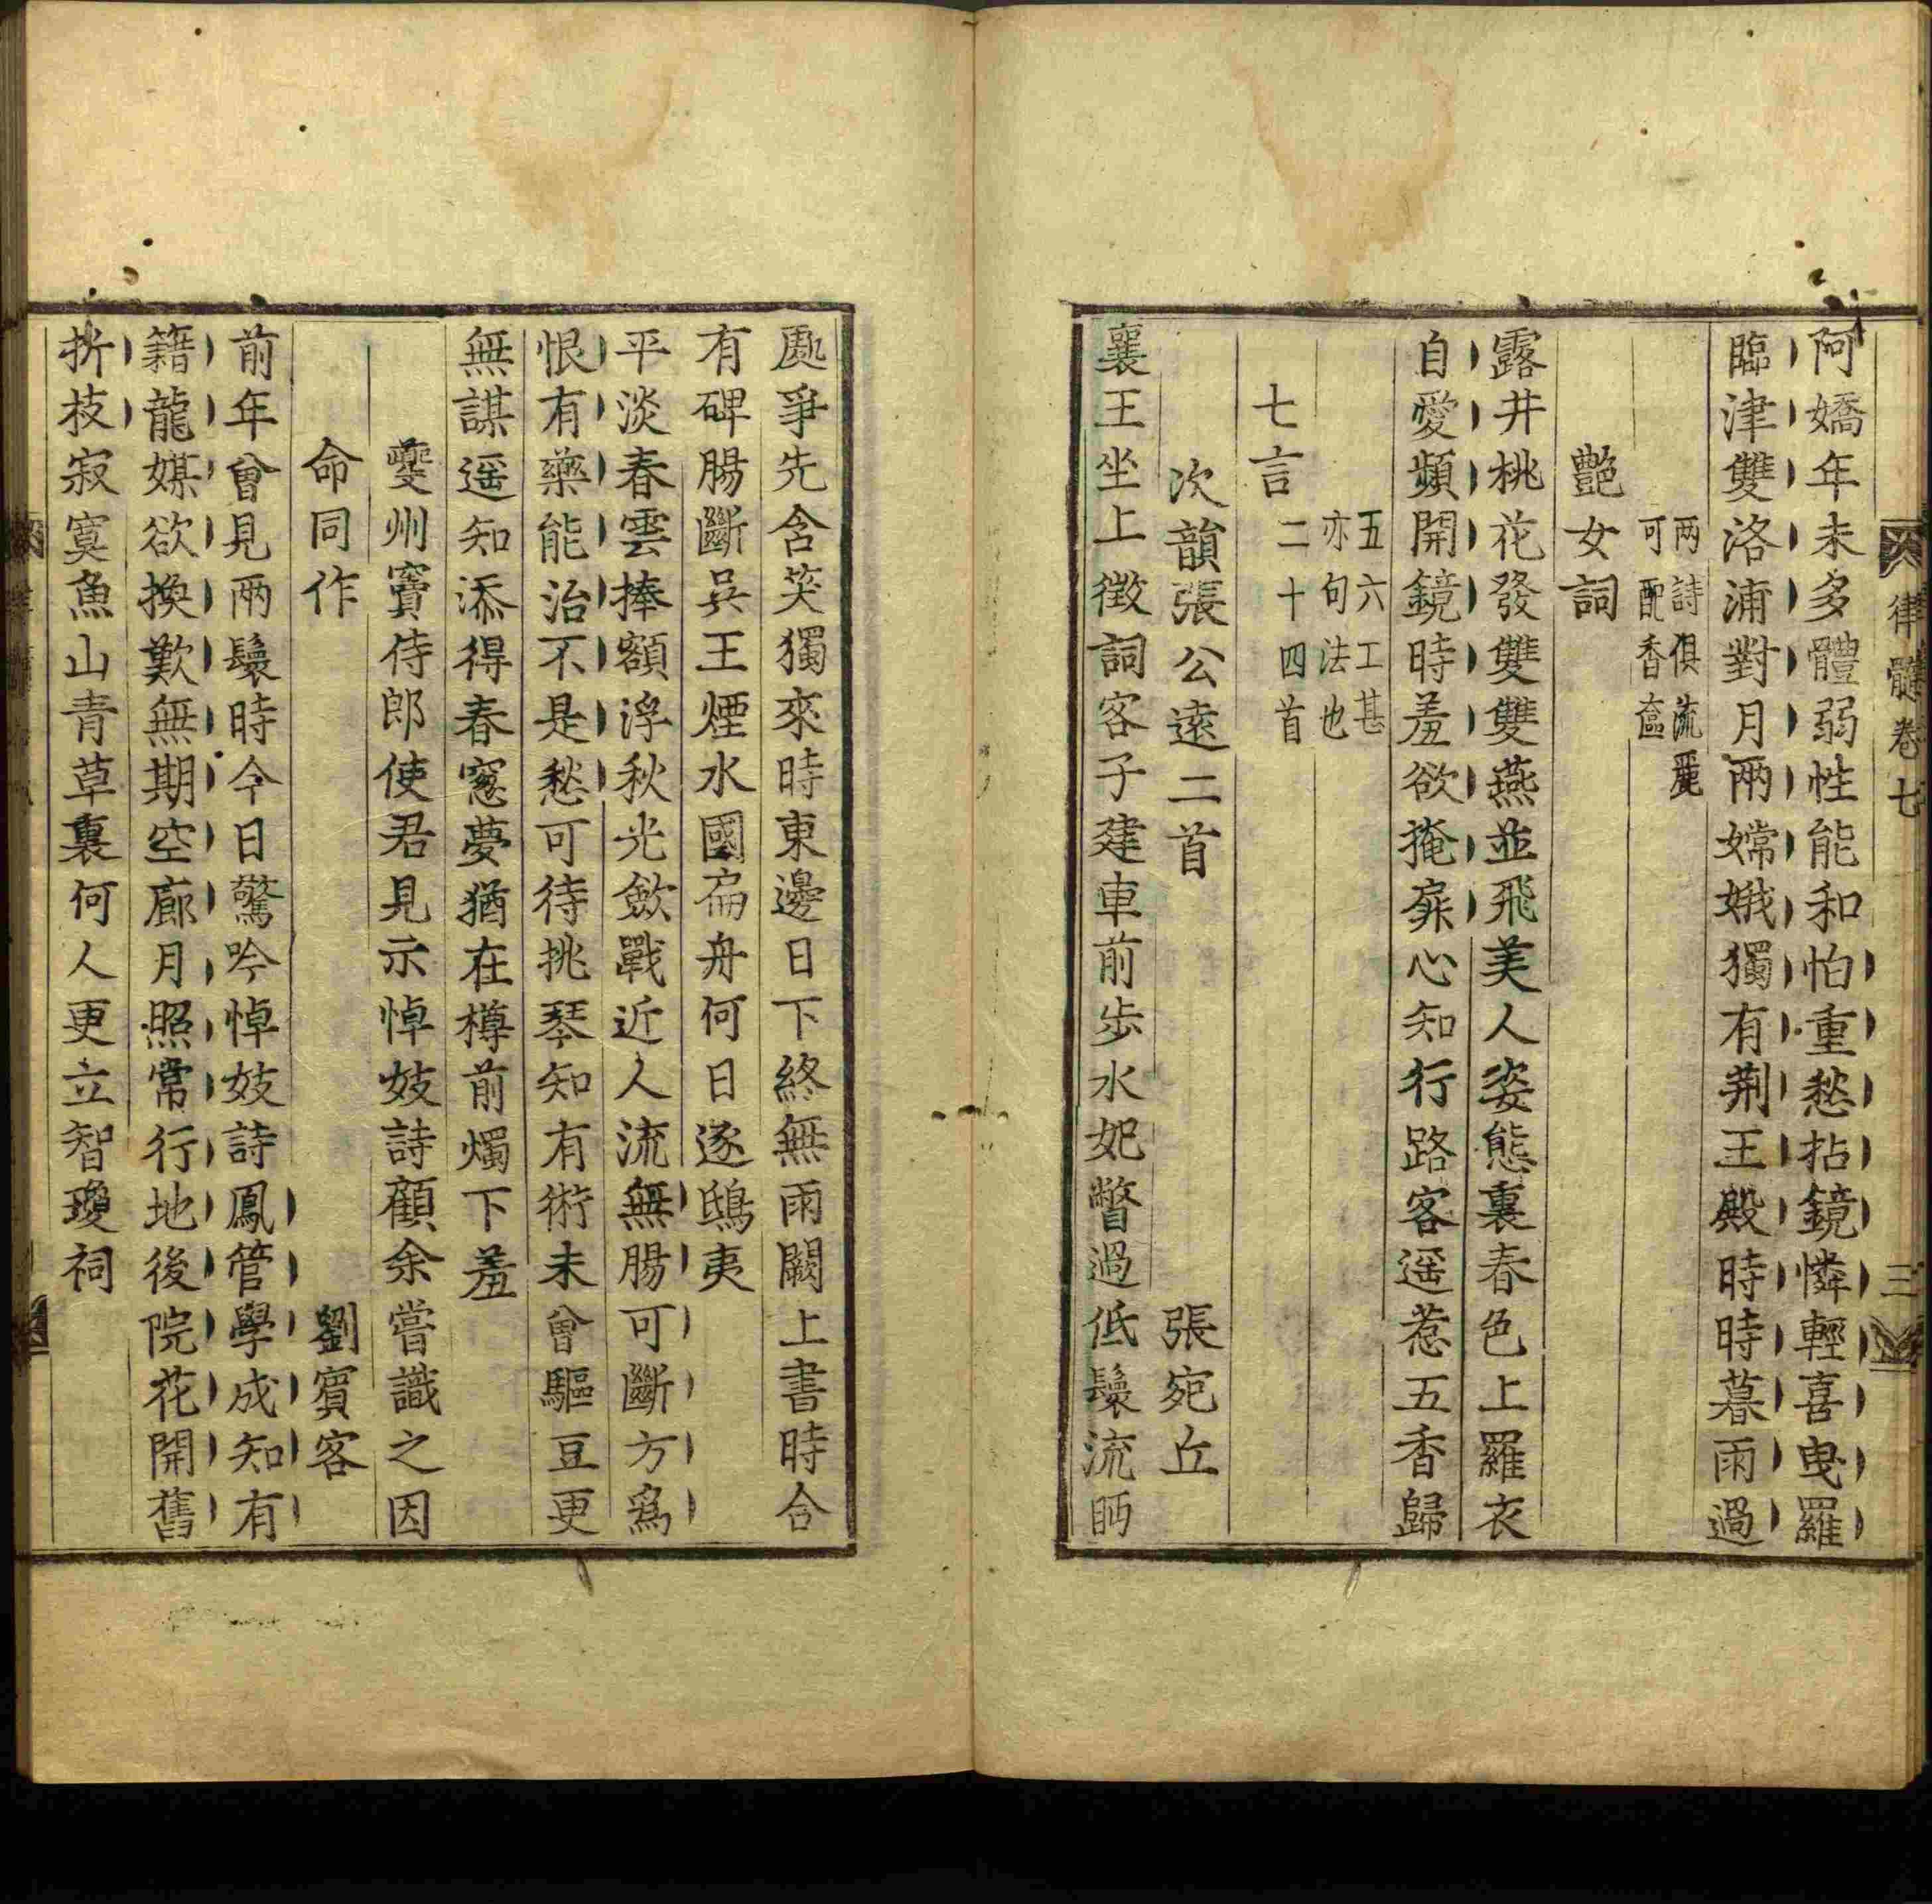 律髓卷七
三
阿嬌年未多體弱性能和怕重愁拈鏡憐輕喜曳羅
臨津雙洛浦對月兩嫦娥獨有荆王殿時時暮雨過
两詩俱流麗
可配香奩
艷女詞
露井桃花發雙雙燕並飛美人姿態裏春色上羅衣
自愛頻開鏡時羞欲掩扉心知行路客遥惹五香歸
五六工甚
亦句法也
七言
二十四首
次韻張公遠二首 張宛丘
襄王坐上徵詞客子建車前步水妃瞥過低鬟流眄
處爭先含笑獨來時東邊日下終無雨闕上書時合
有碑腸斷吳王煙水國扁舟何日逐鴟夷
平淡春雲捧額浮秋光斂戰近人流無腸可斷方爲
恨有藥能治不是愁可待挑琴知有術未曾驅豆更
無謀遥知添得春窻夢猶在樽前燭下羞
夔州竇侍郎使君見示悼妓詩顧余嘗識之因
命同作 劉賓客
前年曾見兩鬟時今日驚吟悼妓詩鳳管學成知有
籍龍媒欲換歎無期空廊月照常行地後院花開舊
折枝寂寞魚山青草裏何人更立智瓊祠